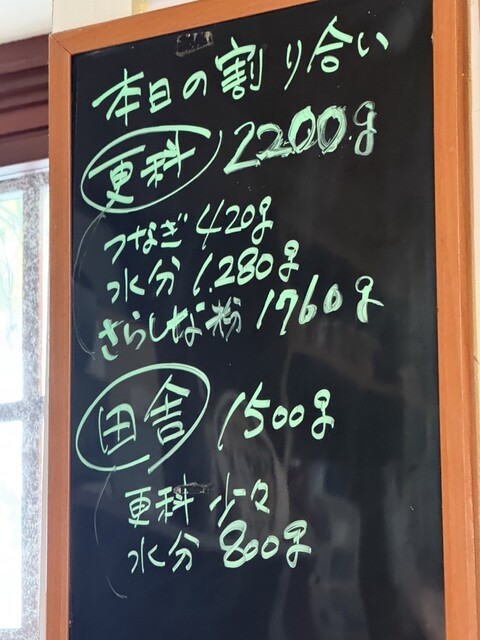 本日の割り合い
更科 2200g
つなぎ 420g
水分 1.280g
さらしな粉 1760g
田舎 1500g
更科 少々
水分 800g